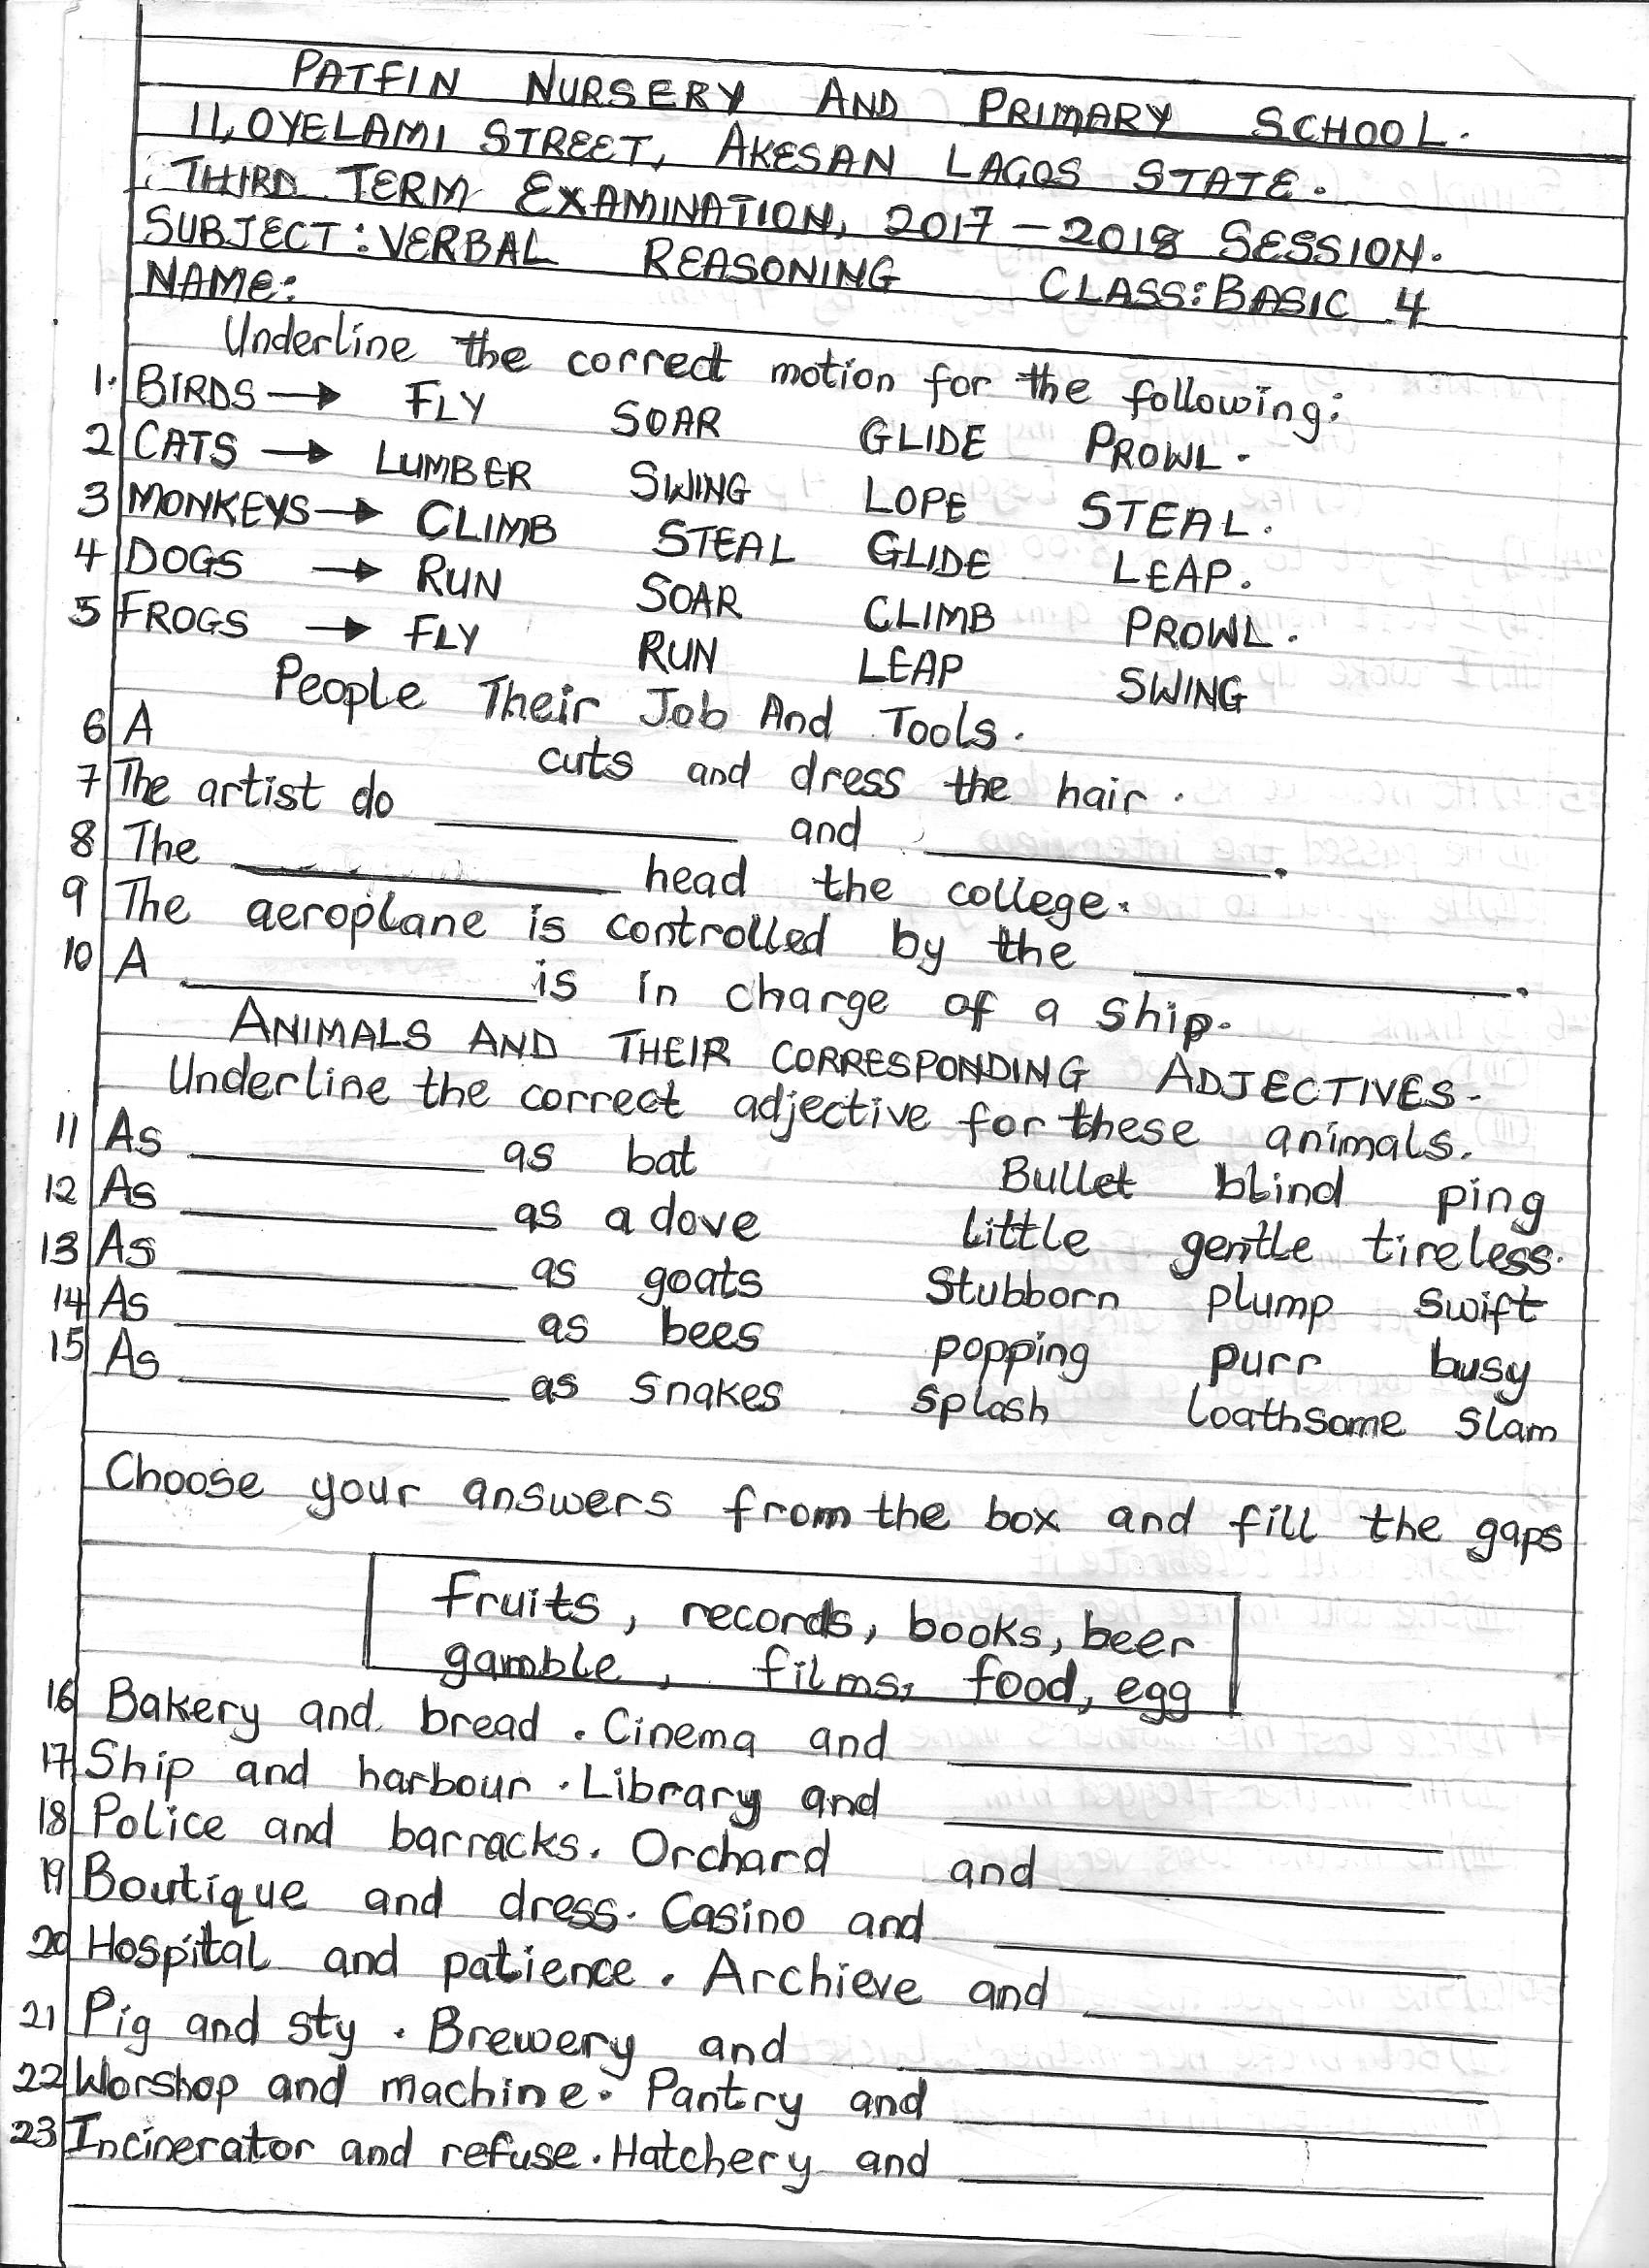 PATFIN NURSERY AND PRIMARY SCHOOL.
11, OYELAMI STREET, AKESAN LAGOS STATE.
THIRD TERM EXAMINATION, 2017 - 2018 SESSION.
SUBJECT: VERBAL REASONING CLASS: BASIC 4
NAME:
Underline the correct motion for the following:
1. BIRDS → FLY SOAR GLIDE PROWL.
2 CATS → LUMBER SWING LOPE STEAL.
3 MONKEYS → CLIMB STEAL GLIDE LEAP.
4 DOGS → RUN SOAR CLIMB PROWL.
5 FROGS → FLY RUN LEAP SWING
People Their Job And Tools.
6 A cuts and dress the hair.
7 The artist do ________ and ________.
8 The ________ head the college.
9 The aeroplane is controlled by the ________.
10 A ________ is in charge of a ship.
ANIMALS AND THEIR CORRESPONDING ADJECTIVES.
Underline the correct adjective for these animals.
11 As ________ as bat Bullet blind ping
12 As ________ as a dove little gentle tireless.
13 As ________ as goats Stubborn plump swift
14 As ________ as bees popping purr busy
15 As ________ as snakes splash loathsome slam
Choose your answers from the box and fill the gaps
fruits, records, books, beer
gamble, films, food, egg
16 Bakery and bread. Cinema and ________
17 Ship and harbour. Library and ________
18 Police and barracks. Orchard and ________
19 Boutique and dress. Casino and ________
20 Hospital and patience. Archieve and ________
21 Pig and sty. Brewery and ________
22 Worshop and machine. Pantry and ________
23 Incinerator and refuse. Hatchery and ________